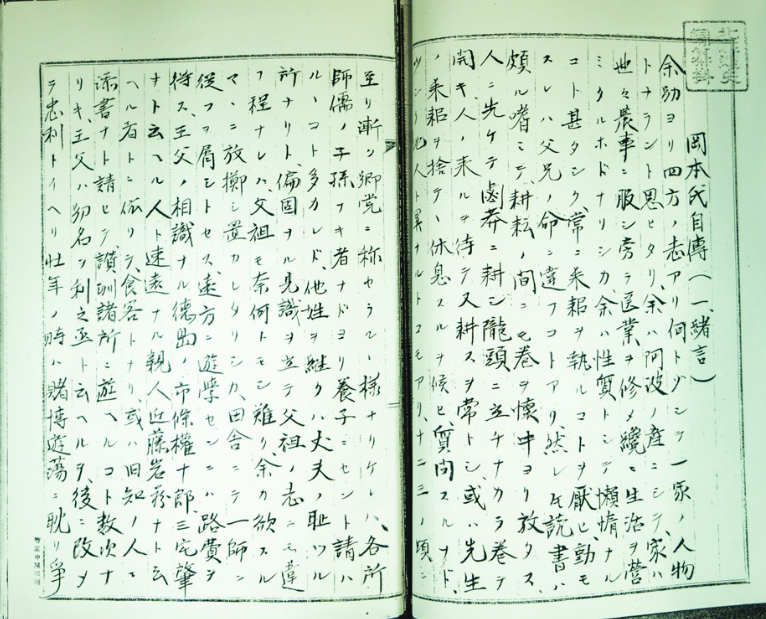 岡本氏自傳(一、緒言)
余幼ヨリ四方ノ志アリ何トゾシテ一家ノ人物
トナラント思ヒタリ、余ハ阿波ノ産ニシテ家ハ
世々農事ニ服シ旁ラ医業ヲ修メ纔ニ生活ヲ営
ミタルホドナリシカ余ハ性質トシテ懶惰ナル
コト甚タシク、常ニ耒耜ヲ執ルコトヲ厭ヒ動モ
スレハ父兄ノ命ニ違フコトアリ、然レ共読書ハ
頗ル嗜ミテ耕耘ノ間ニモ巻ヲ懐中ヨリ放タス、
人ニ先ケテ鹵莽ニ耕シ隴頭ニ立チナカラ巻ヲ
開キ人ノ来ルヲ待テ又耕スヲ常トシ或ハ先生
ノ耒耜ヲ捨テ休息スルヲ候ヒ質問スルナド、
人ト異ナルトコモアリ、十二三ノ頃ニ
至リ漸ク郷党ニ称セラルヽ様ナリケレハ、各所
師儒ノ子孫ナキ者ナドヨリ養子ニセント請ハ
ルヽコト多カレド、他姓ヲ継クハ丈夫ノ恥ツル
所ナリト、偏固ナル見識ヲ立テ父祖ノ志ニモ違
フ程ナレハ、父祖モ奈何トモシ難リ、余カ欲スル
マヽニ放擲シ置カレタリシカ、田舎ニテ一師ニ
従フヲ屑シトセス、遠方ニ遊学センニハ路費ヲ
待ス、王父ノ相識ナル徳島ノ市條權十郎三宅肇
ナト云ヘル人ト速遠ナル親人近藤岩疹ナト云
ヘル者トニ依リテ食客トナリ、或ハ旧知ノ人ニ
添書ナト請ヒテ讃訓諸所ニ遊ヘルコト数次ナ
リキ、王父ハ別名ヲ利之丞ト云ヘルヲ、後ニ改メ
テ忠利トイヘリ壮年ノ時ハ賭博遊蕩ニ耽リ争